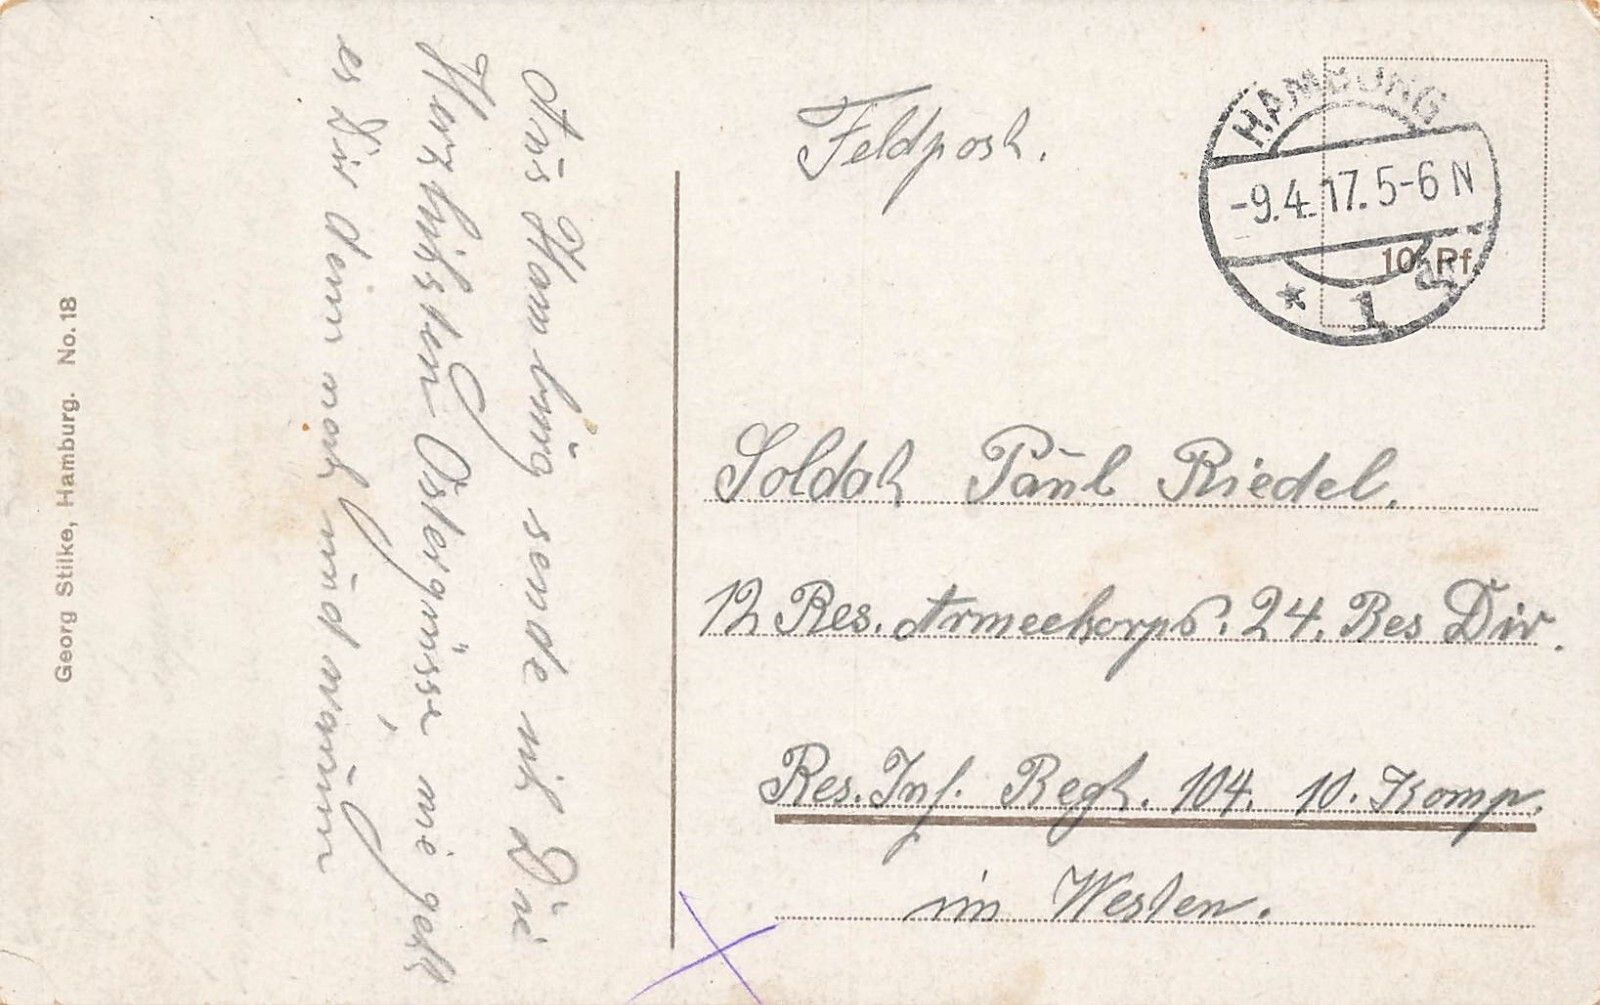 Feldpost.
HAMBURG
-9.4.17. 5-6 N
* 1
10 Pf.
Soldat Paul Riedel.
12 Res. Armeekorps. 24. Res Div.
Res. Inf. Regt. 104. 10. Komp.
im Westen.
Aus Hamburg sende ich Die
Herzlichsten Ostergrüsse, wie geht
es Dir denn noch und warum
Georg Stilke, Hamburg. No. 18